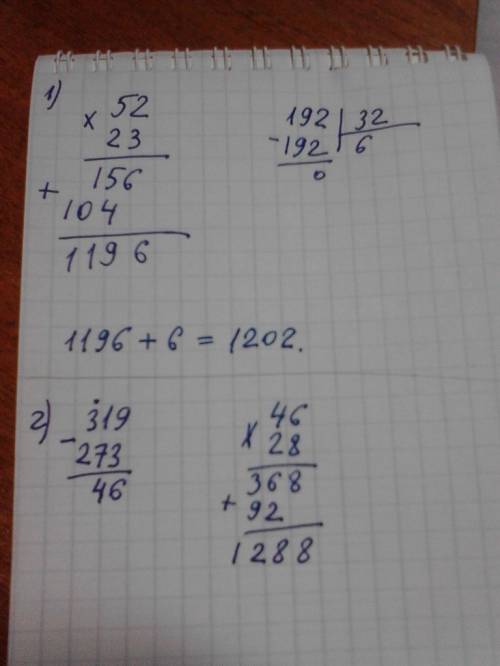 1)
× 52
23
+ 156
104
1196
192 | 32
- 192 | 6
0
1196 + 6 = 1202.
2)
- 319
273
46
× 46
28
+ 368
92
1288